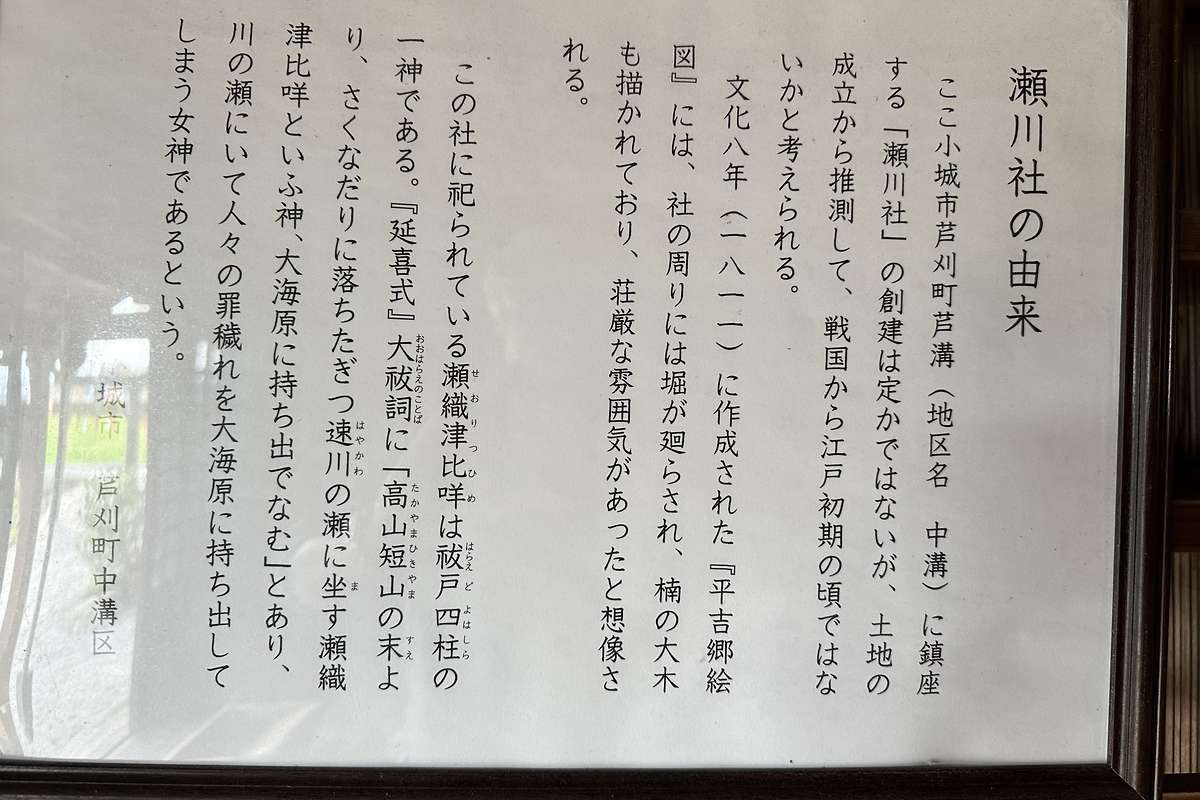 瀬川社の由来
ここ小城市芦刈町芦溝（地区名　中溝）に鎮座
する「瀬川社」の創建は定かではないが、土地の
成立から推測して、戦国から江戸初期の頃ではな
いかと考えられる。
文化八年（一八一一）に作成された『平吉郷絵
図』には、社の周りには堀が廻らされ、楠の大木
も描かれており、荘厳な雰囲気があったと想像さ
れる。
この社に祀られている瀬織津比咩は祓戸四柱の
せおりつひめ
はらえど
よはしら
一神である。『延喜式』大祓詞に「高山短山の末よ
おおはらえのことば
たかやまひきやま
すえ
り、さくなだりに落ちたぎつ速川の瀬に坐す瀬織
はやかわ
ま
津比咩といふ神、大海原に持ち出でなむ」とあり、
川の瀬にいて人々の罪穢れを大海原に持ち出して
しまう女神であるという。
城市　芦刈町中溝区